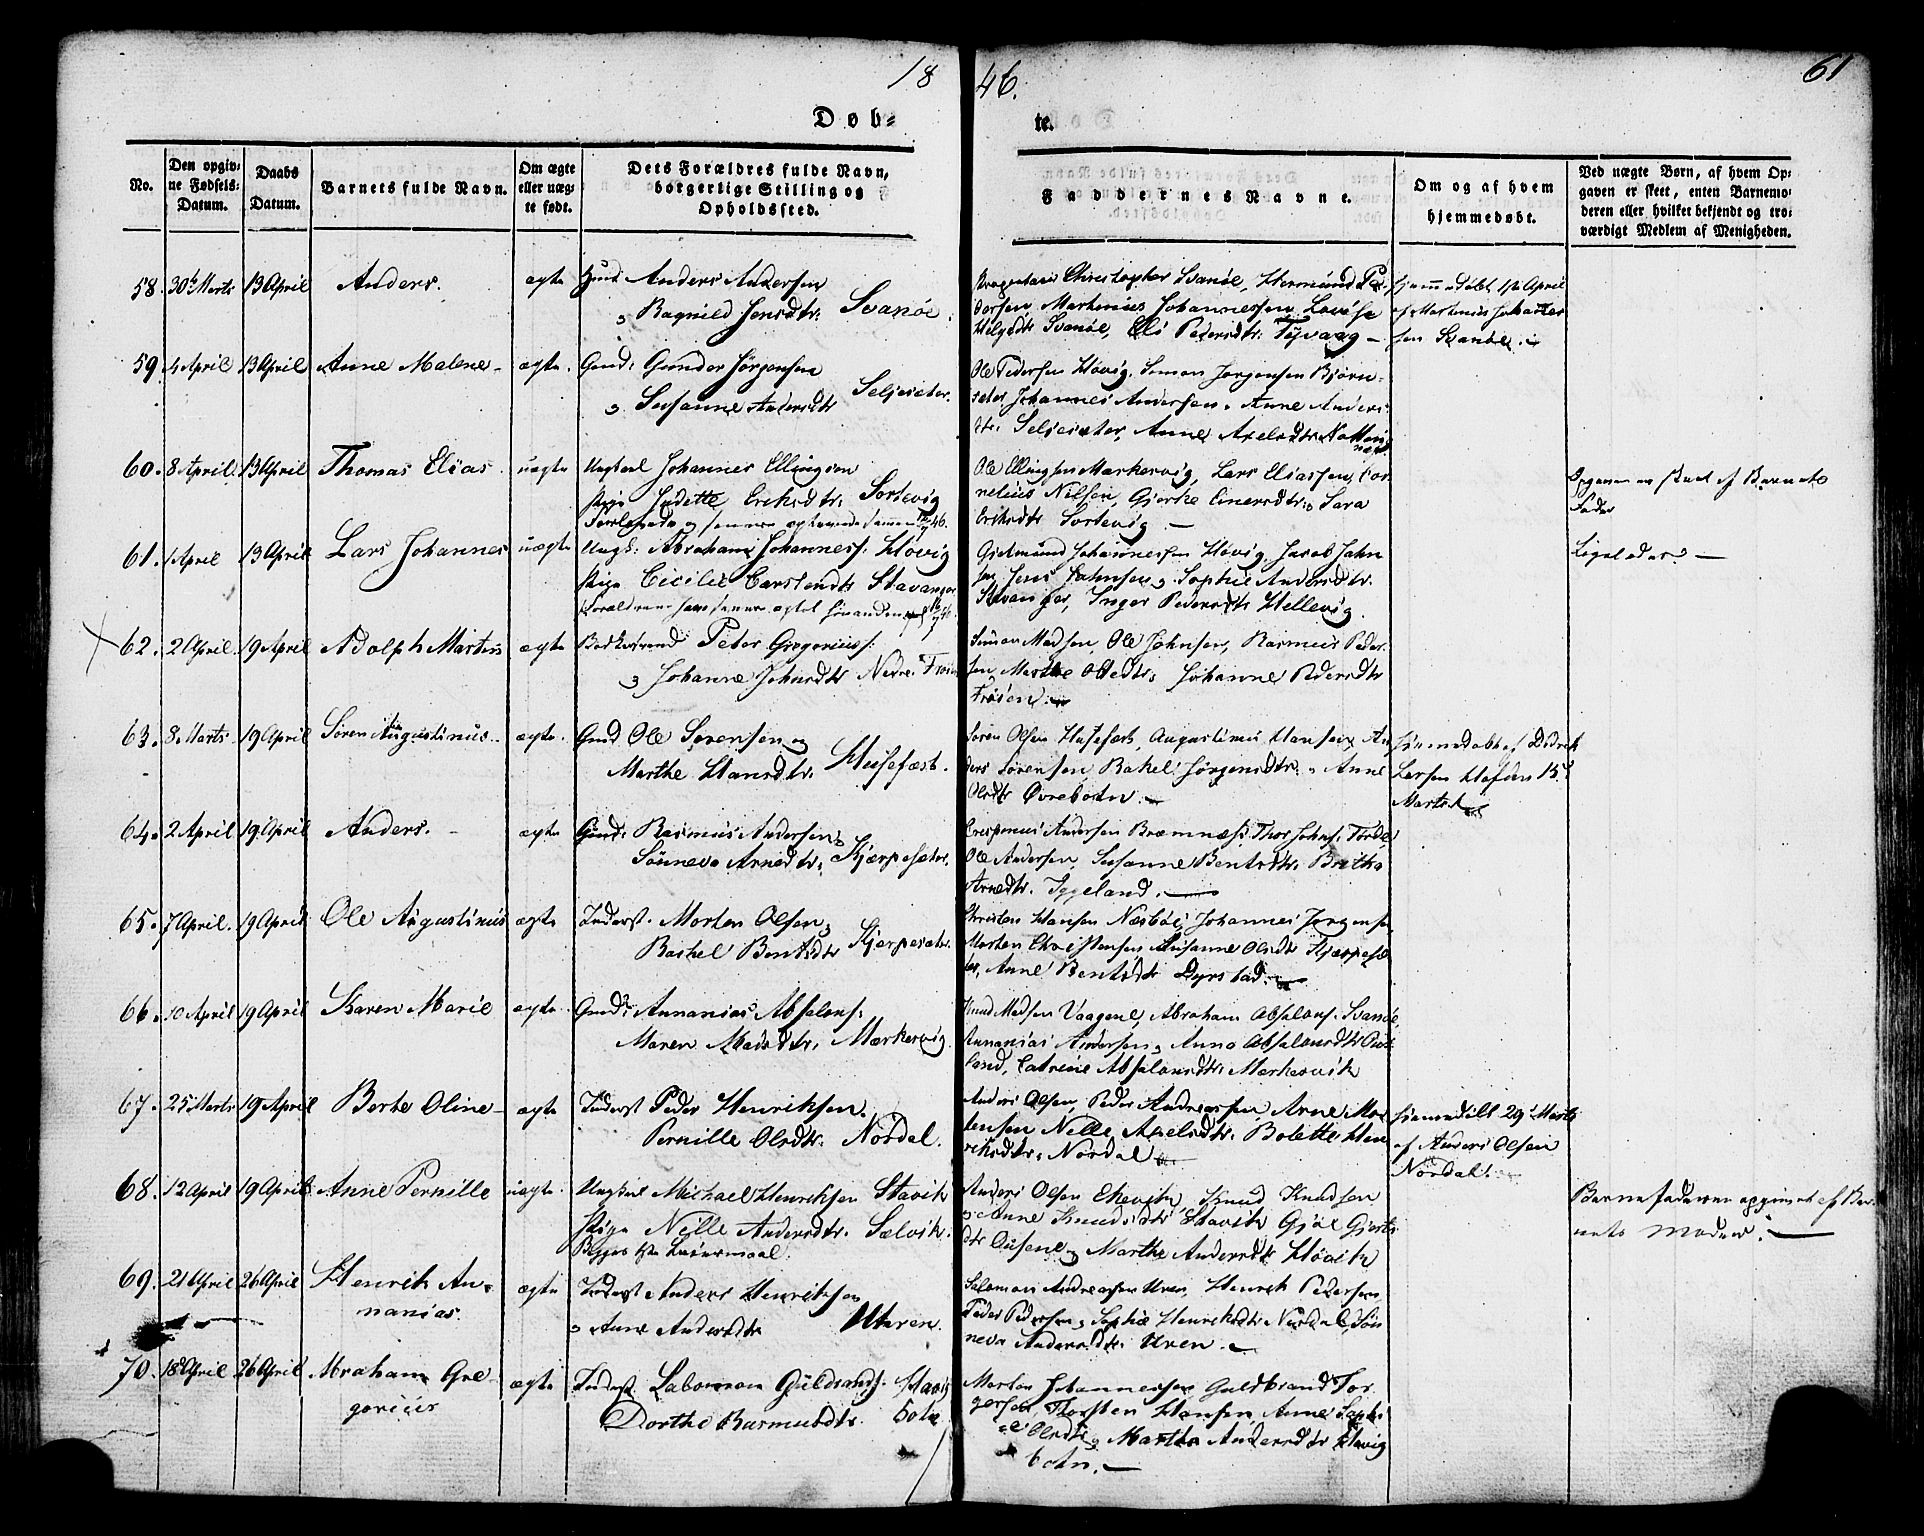 18
46.
61
Døb-
te.
No.
Den opgiv-
ne Fødsels-
Datum.
Daabs
Datum.
Barnets fulde Navn.
Om ægte
eller uæg-
te født.
Dets Forældres fulde Navn,
borgerlige Stilling og
Opholdssted.
Faddernes Navne.
Om og af hvem
hjemmedøbt.
Ved uægte Børn, af hvem Op-
gaven er skeet, enten Barnemo-
deren eller hvilket bekjendt og tro-
værdigt Medlem af Menigheden.
58. 30te Marts 13 April Anders. ægte Gmd Anders Andersen
Ragnild Jensdtr: Svanøe
Christopher Svanøe, Hermund Pe-
dersen, Marthinus Johannessen, Lovise
Helgedtr Svanøe, Eli Pedersdtr: Tyvaag —
hjemmedøbt April
af Marthinus Johannes-
sen Svanøe.
59 4 April 13 April Anne Malene ægte. Gmd: Gunder Jørgensen
Susanne Andersdtr Seljesæter.
Ole Pedersen Høvig, Simon Jørgensen Bjørn-
seter Johannes Andersen, Anne Anders-
dtr. Seljesæter, Anne Axelsdtr
60. 8 April 13 April Thomas Elias uægte Ungkarl Johannes Ellingsen
Pige Jodette Eriksdtr. Sortevig
46.
Ole Ellingsen Markevig, Lars Eliassen, Cor-
nelius Nilsen, Gjerthe Einersdtr, Sara
Eriksdtr Sortevig —
Opgaven er skeet af Barnets
Fader
61. 1 April 13 April Lars Johannes uægte Ungk: Abraham Johanness: Høvig
Pige Cicilie Carstendtr Stavanger
Forældrene have senere ægtet hinanden
Gjetmund Johannessen Høvig, Jacob John
sen, Jens Johnsen, Sophie Andersdtr.
Stavanger, Inger Pedersdtr Hellevig
Ligeledes —
62. 2 April. 19 April Adolph Martin ægte Peter Gregorius:
Johanne Johnsdtr Nedre Frøien
Simon Madsen, Ole Johnsen, Rasmus Peder-
sen, Marthe Olsdtr, Johanne Pedersdtr
Frøien.
63. 8. Marts 19 April Søren Augustinus ægte. Gmd Ole Sørensen og
Marthe Hansdtr. Husefæst.
Søren Olsen Husefæst, Augustinus Hansen, An-
ders Sørensen, Rakel Jørgensdtr., Anne
Olsdtr Øvrebotn.
hjemmedøbt af Didrik
Larsen Hofden 15d
Marts
64. 2 April 19 April Anders. ægte Gmd: Rasmus Andersen
Sønneva Arnesdtr. Kjærpesæter.
Crisponius Andersen Bræmnæs, Thor Johns: Førde,
Ole Andersen, Susanne Bentsdtr. Britha
Arnesdtr. Iggeland. —
65. 7 April. 19 April Ole Augustinus ægte Inderst. Morten Olsen
Rachel Bentsdtr Kjærpesæter.
Christen Hansen Næsbøe, Johannes Jørgensen
Morten Christensen Susanne Olsdtr Kjærpesæ-
ter, Anne Bentsdtr Dyrstad.
66. 10 April 19 April Karen Marie ægte. Gmd: Annanias Absalons:
Maren Madsdtr. Markevig.
Knud Madsen Vaagene, Abraham Absalons. Svanøe,
Annanias Andersen, Anna Absalonsdtr
land, Catrine Absalonsdtr. Markesvik
67. 25 Marts 19 April Berte Oline ægte Inderst Peder Henriksen.
Pernille Olsdtr. Nordal.
Anders Olsen, Peder Andreassen, Arne Mor-
tensen Nille Axelsdtr. Bolette Hen
riksdtr. Nordal
hjemmedøbt 29 Marts
af Anders Olsen
Nordal.
68. 12 April 19 April Anne Pernille uægte. Ungkarl Michael Henriksen Stavik
Pige Nille Andersdtr. Sælvik.
Begges 1ste Leiermaal.
Anders Olsen Ekevik, Knud Knudsen
Anne Knudsdtr Stavik Gjøe Gjerts
dtr Ousene, Marthe Andersdtr Høvik
Barnefaderen opgivet af Bar
nets Moder. —
69. 21 April 26 April Henrik An-
nanias. ægte Inderst Anders Henriksen
Anne Andersdtr Uren.
Salomon Andreassen Uren, Henrik Pedersen,
Peder Pedersen, Sophie Henriksdtr Nordal, Søn
neva Andersdtr. Uren.
70. 18 April 26 April Abraham Gre-
gorius ægte Inderst Salomon Guldbrands. Stavig
Dorthe Rasmusdtr. botn
Morten Johannessen, Guldbrand Tor-
gersen Thorsten Hansen, Anne Sophi
e Olsdtr, Marthe Andersdtr Stavig
botn. —